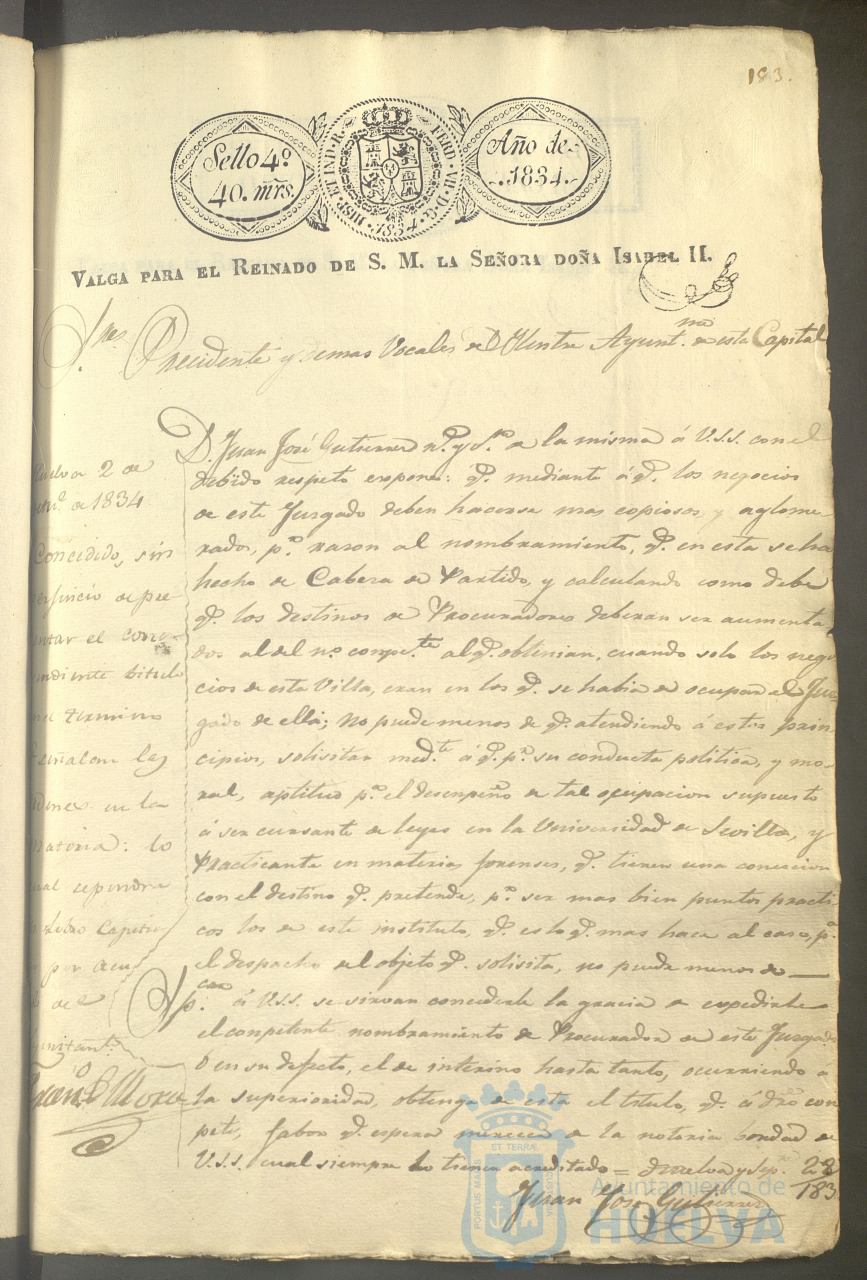 183.
Sello 4º
40. mrs.
HISP. ET IND. R. FERD. VII. D. G.
1834
Año de
1834.
VALGA PARA EL REINADO DE S. M. LA SEÑORA DOÑA ISABEL II.
Sres Precidente y demas Vocales de Yltre Ayuntmto de esta Capital
D. Juan José Gutierrez nl. y de la misma á V.S.S. con el
debido respeto expone: q. mediante á q. los negocios
de este Juzgado deben hacerse mas copiosos, y aglome-
rados, pr. razon al nombramiento, q. en esta se ha
hecho de Cabeza de Partido, y calculando como debe
q. los destinos de Procuradores deberan ser aumenta
dos al del no. compete. al q. obtenian, cuando solo los nego
cios de esta Villa, eran en los q. se habia de ocupar el Juz
gado de ella; no puede menos de q. atendiendo á estos prin
cipios, solisitar medte. á q. pr. su conducta politica, y mo-
ral, aptitud pa. el desempeño de tal ocupacion supuesto
á ser cursante de leyes en la Universidad de Sevilla, y
Practicante en materias forenses, q. tienen una coneccion
con el destino q. pretende, pr. ser mas bien puntos practi
cos los de este instituto, q. es lo q. mas hace al caso, pa.
el despacho del objeto q. solisita, no puede menos de
á V.S.S. se sirvan concederle la gracia de expedirle
el competente nombramiento de Procurador de este Juzgado
ó en su defecto, el de interino hasta tanto, ocurriendo á
la superioridad, obtenga de esta el titulo, q. á dro. com
pete, fabor q. espera merecer de la notoria bondad de
V.S.S. cual siempre lo tienen acreditado = Huelva y Sep. 2 de
183
Juan José Gutierrez
Huelva 2 de
de 1834
Concedido, sin
perjuicio de pre
sentar el corres-
pondiente titulo
en el termino
señalan las
ordenes en la
materia: lo
cual se pondra
Libro Capitu
por acu
del
Francº. E Mora
PORTUS MARIS ET TERRAE CUSTODIA
Ayuntamiento de
HUELVA